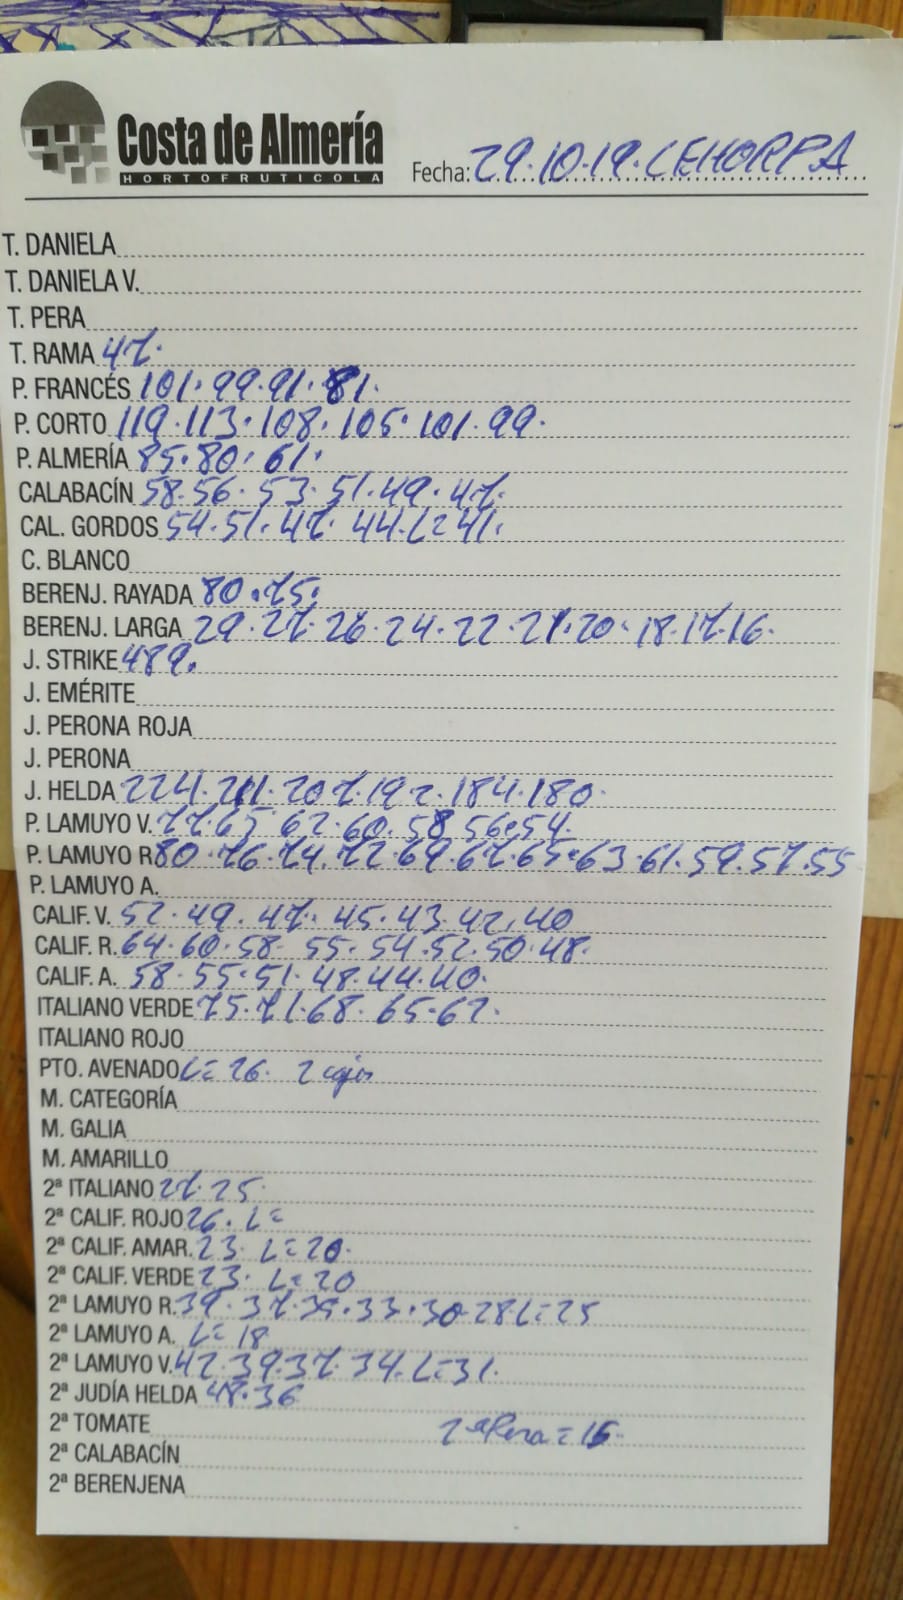 Costa de Almería
HORTOFRUTICOLA
Fecha: 29.10.19. CEHORPA
T. DANIELA
T. DANIELA V.
T. PERA
T. RAMA 47.
P. FRANCÉS 101. 99. 91. 81.
P. CORTO 119. 113. 108. 105. 101. 99.
P. ALMERÍA 85. 80. 61.
CALABACÍN 58. 56. 53. 51. 49. 47.
CAL. GORDOS 54. 51. 47. 44. L= 41.
C. BLANCO
BERENJ. RAYADA 80. 75.
BERENJ. LARGA 29. 27. 26. 24. 22. 21. 20. 18. 17. 16.
J. STRIKE 489.
J. EMÉRITE
J. PERONA ROJA
J. PERONA
J. HELDA 224. 211. 207. 192. 184. 180.
P. LAMUYO V. 65 62. 60. 58 56. 54.
P. LAMUYO R 80. 76. 74. 72. 69. 67. 65. 63. 61. 59. 57. 55
P. LAMUYO A.
CALIF. V. 52. 49. 47. 45. 43. 42. 40
CALIF. R. 64. 60. 58. 55. 54. 52. 50. 48.
CALIF. A. 58. 55. 51. 48. 44. 40.
ITALIANO VERDE 75. 71. 68. 65. 62.
ITALIANO ROJO
PTO. AVENADO L= 26. 2 cajas
M. CATEGORÍA
M. GALIA
M. AMARILLO
2ª ITALIANO 27. 25
2ª CALIF. ROJO 26. L=
2ª CALIF. AMAR. 23. L= 20.
2ª CALIF. VERDE 23. L= 20
2ª LAMUYO R. 39. 37. 35. 33. 30. 28 L= 25
2ª LAMUYO A. L= 18
2ª LAMUYO V. 42. 39. 37. 34. L= 31.
2ª JUDÍA HELDA 48. 36
2ª TOMATE 2ª Pera = 15.
2ª CALABACÍN
2ª BERENJENA